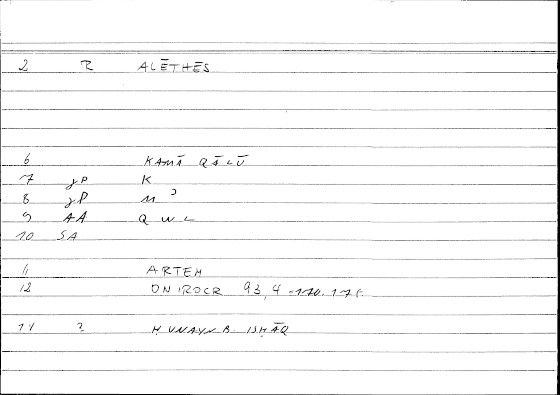 2 R ALĒTHĒS
6 KAMĀ QĀLŪ
7 gP K
8 gP M ᵓ
9 AA Q W L
10 SA
11 ARTEM
12 ONIROCR 93, 4 -170. 171.
14 2 ḤUNAYN B. ISḤĀQ